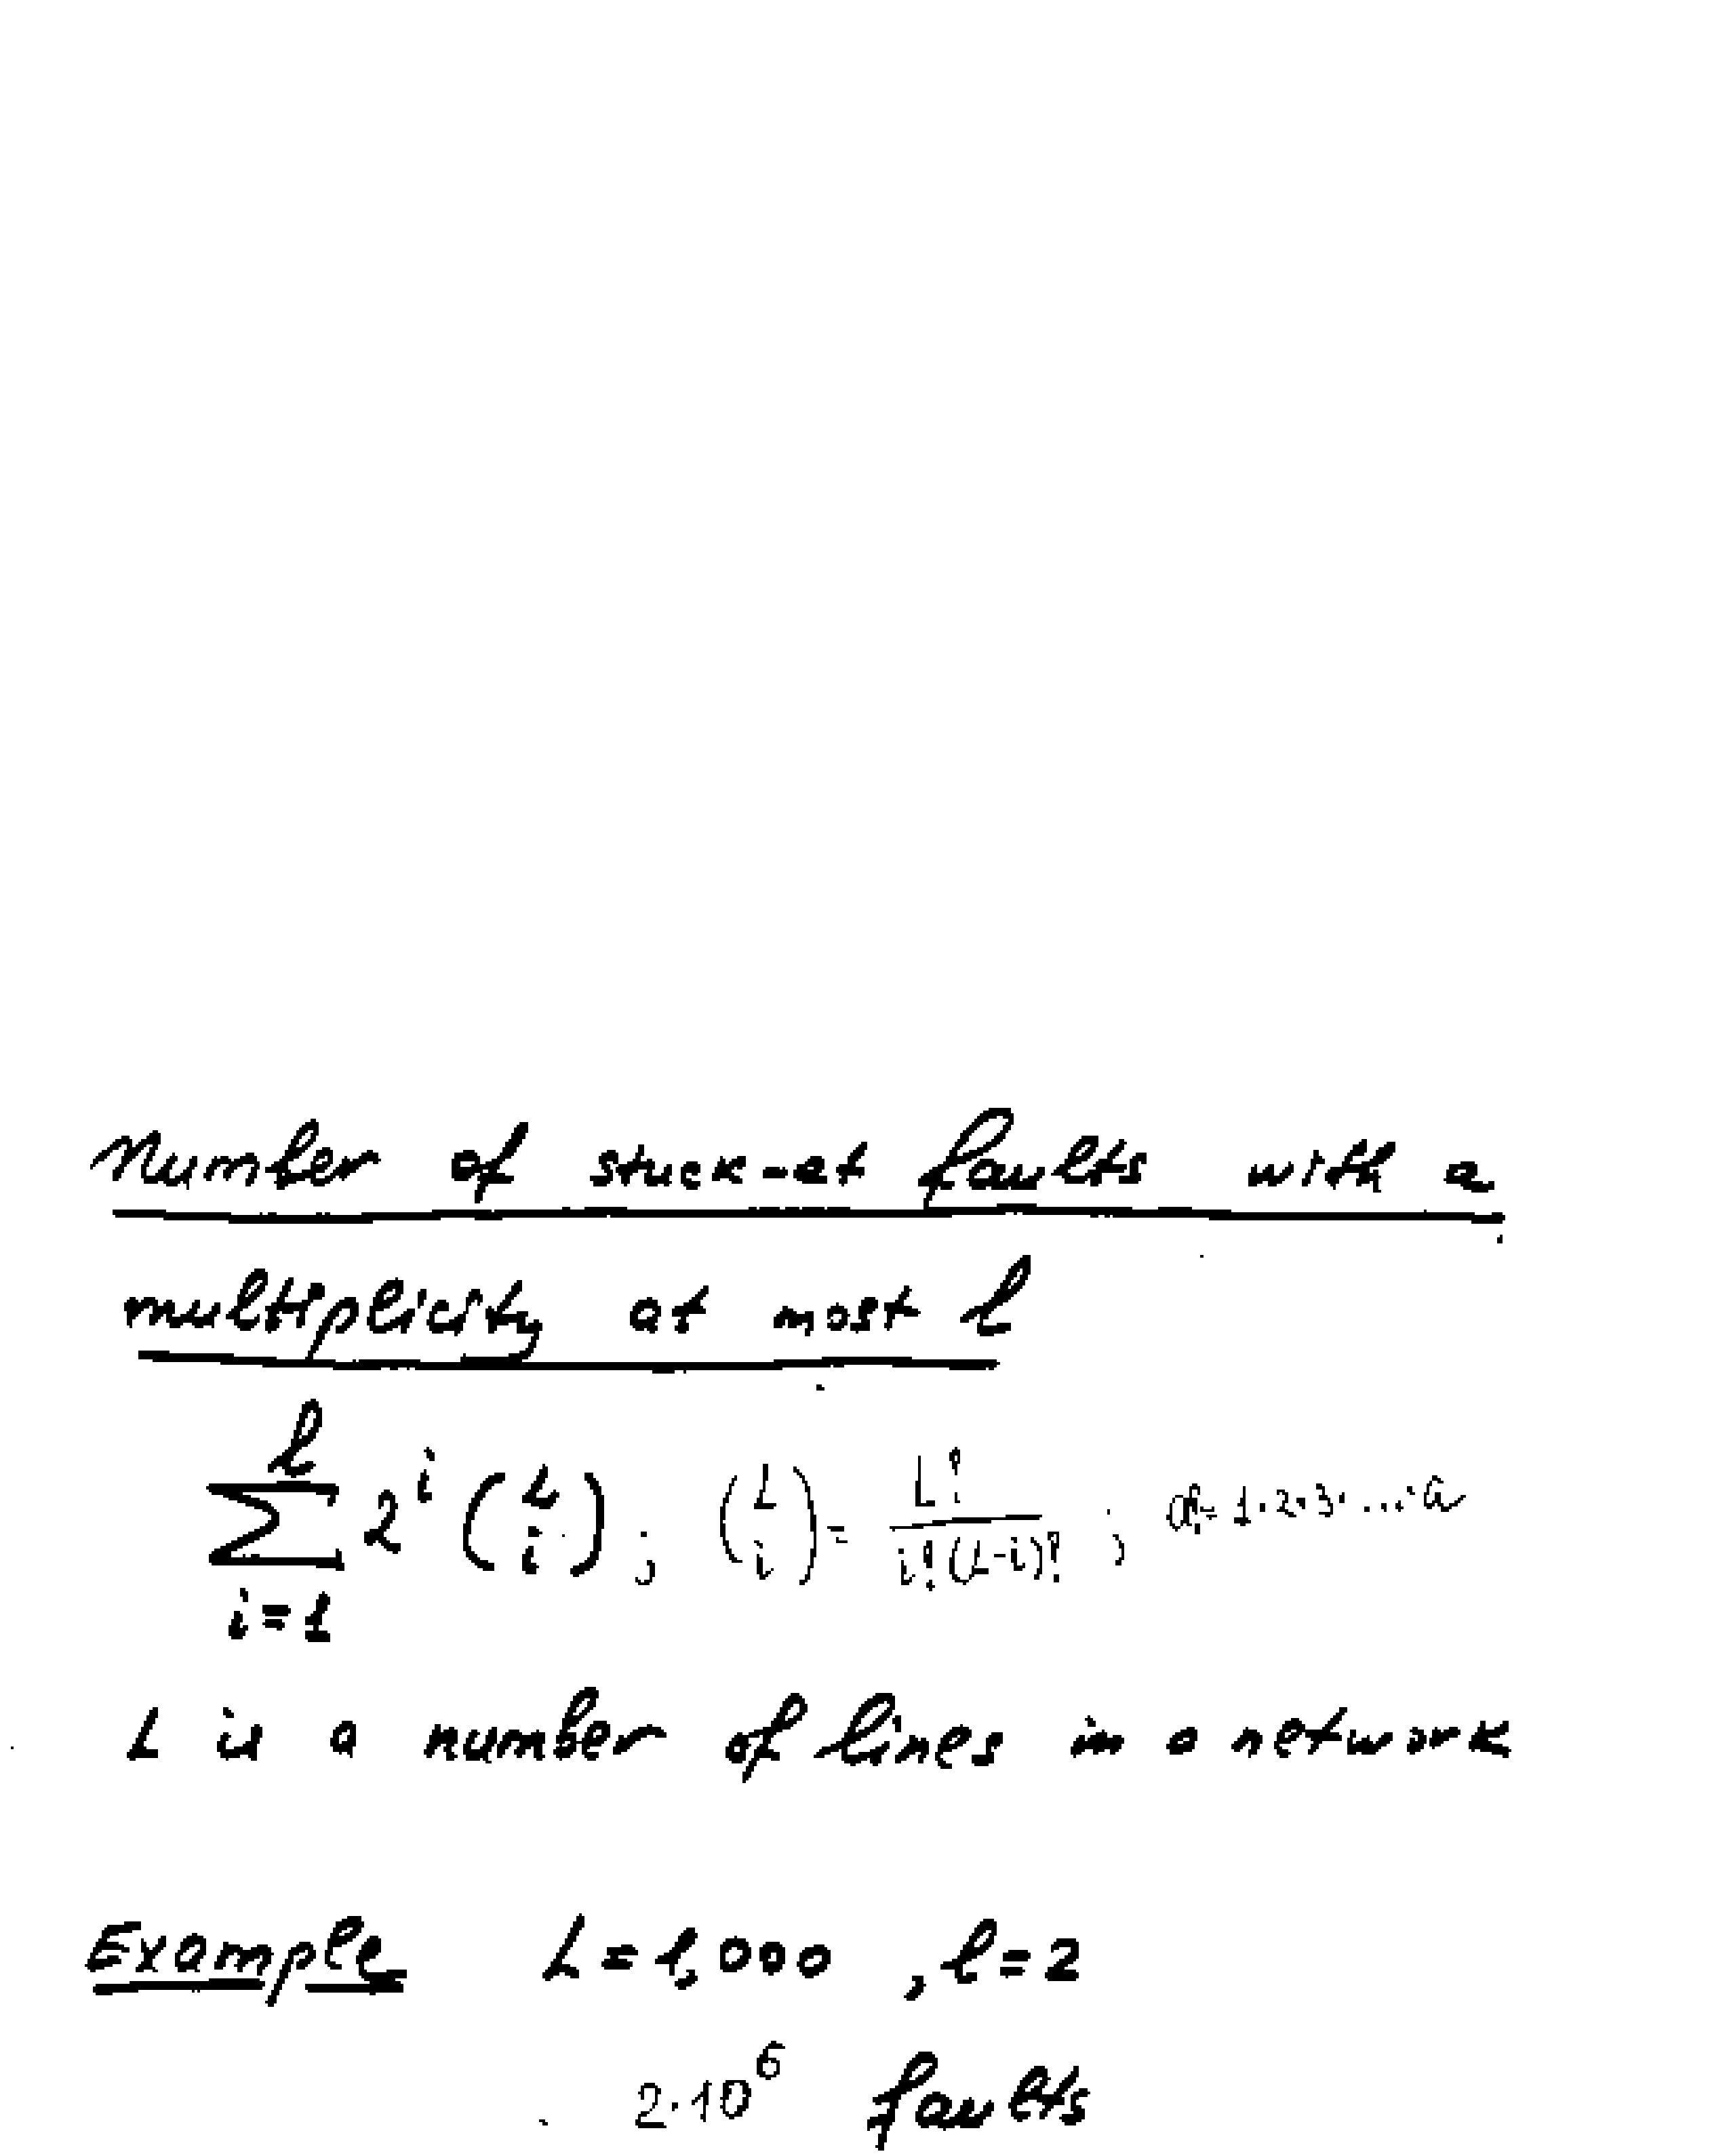 Number of stuck-at faults with a
multiplicity at most l
l
∑ 2^i (L i) ; (L i) = L! / i!(L-i)! ; a! = 1·2·3·...·a
i=1
L is a number of lines in a network
Example L=1,000 , l=2
2·10^6 faults